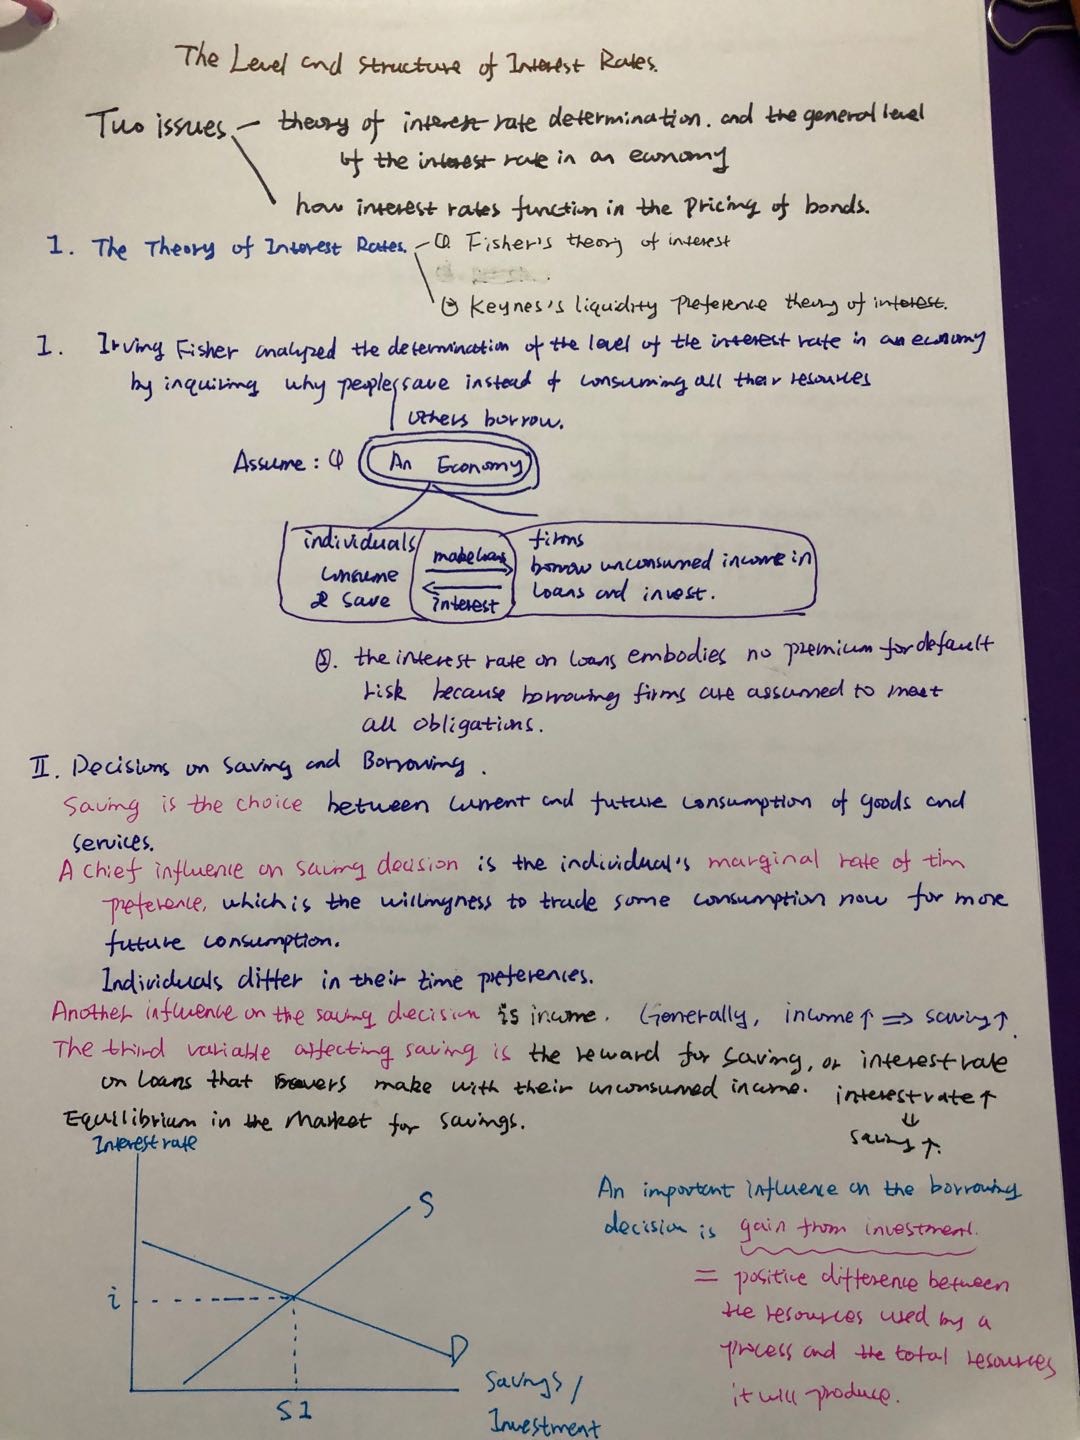 The Level and structure of Interest Rates.
Two issues — theory of interest rate determination. and the general level
of the interest rate in an economy
how interest rates function in the pricing of bonds.
1. The Theory of Interest Rates. — ① Fisher's theory of interest
② Keynes's liquidity preference theory of interest.
I. Irving Fisher analyzed the determination of the level of the interest rate in an economy
by inquiring why people save instead of consuming all their resources
others borrow.
Assume: ① An Economy
individuals
consume
& save
make loans
interest
firms
borrow unconsumed income in
loans and invest.
②. the interest rate on loans embodies no premium for default
risk because borrowing firms are assumed to meet
all obligations.
II. Decisions on Saving and Borrowing.
Saving is the choice between current and future consumption of goods and
services.
A chief influence on saving decision is the individual's marginal rate of tim
preference, which is the willingness to trade some consumption now for more
future consumption.
Individuals differ in their time preferences.
Another influence on the saving decision is income. Generally, income ↑ ⇒ saving ↑.
The third variable affecting saving is the reward for saving, or interest rate
on loans that savers make with their unconsumed income. interest rate ↑
⇓
saving ↑.
Equilibrium in the Market for savings.
Interest rate
S
i
D
S1
Savings /
Investment
An important influence on the borrowing
decision is gain from investment.
= positive difference between
the resources used by a
process and the total resources
it will produce.